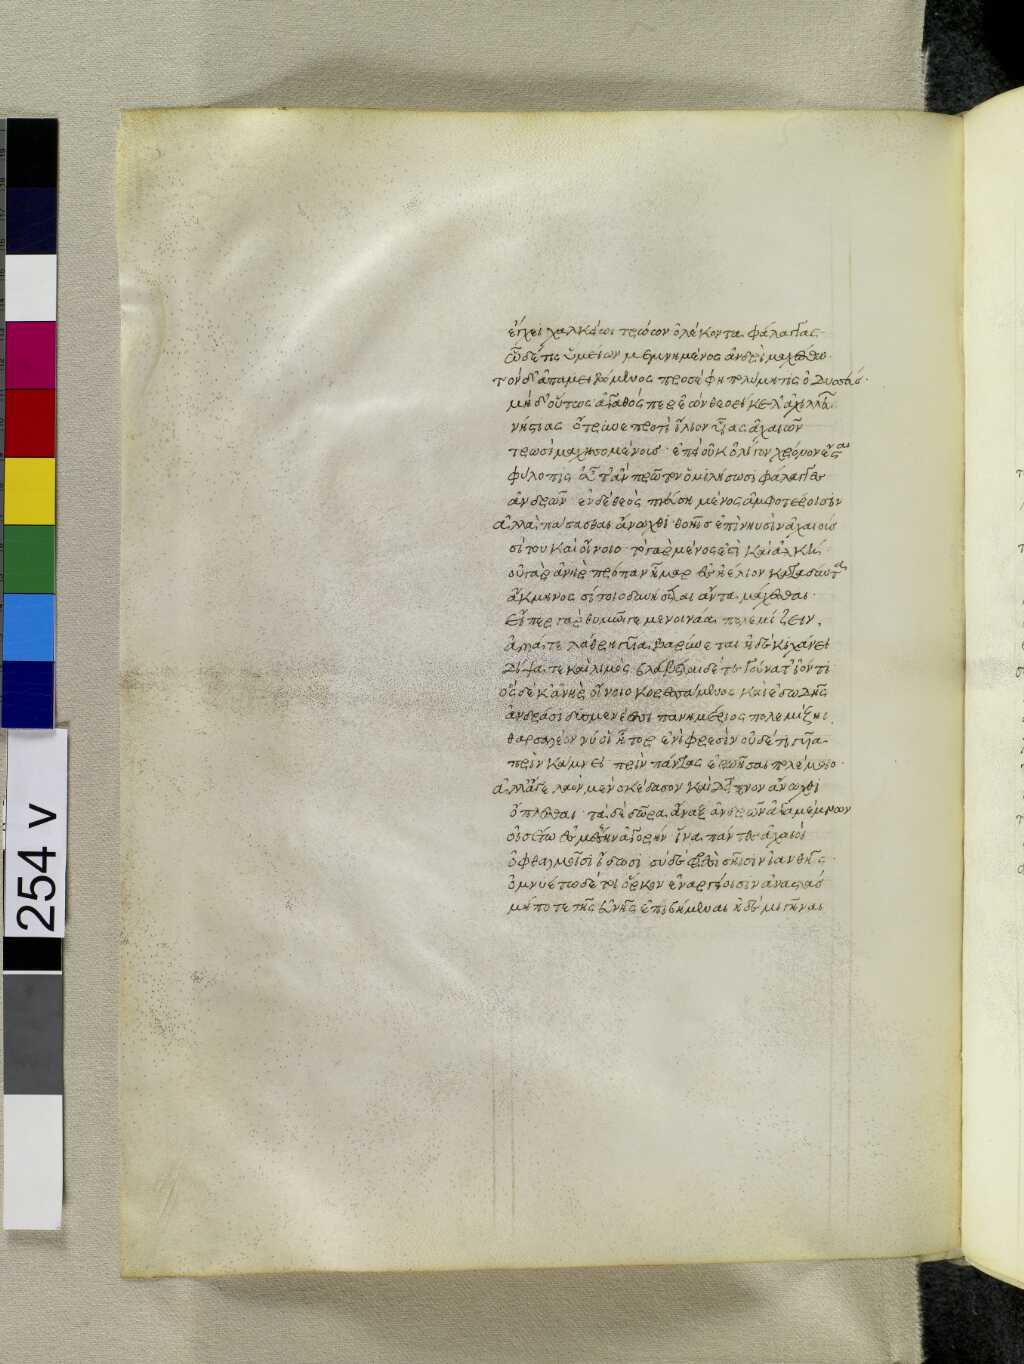 ἔγχει χαλκείωι τρώων ὀλέκοντα φάλαγγας·
ὧδέ τις ὑμείων μεμνημένος ἀνδρὶ μαχέσθω·
τὸν δ' ἀπαμειβόμενος προσέφη πολύμητις ὀδυσσεύς·
μὴ δ' οὕτως ἀγαθός περ ἐὼν θεοείκελ' ἀχιλλεῦ
νήστιας ὄτρυνε προτὶ ἴλιον υἷας ἀχαιῶν
τρωσὶ μαχησομένους· ἐπεὶ οὐκ ὀλίγον χρόνον ἔσται
φύλοπις εὖτ' ἂν πρῶτον ὁμιλήσωσι φάλαγγες
ἀνδρῶν· ἐν δὲ θεὸς πνεύση μένος ἀμφοτέροισιν
ἀλλὰ πάσασθαι ἄνωχθι θοῆις ἐπὶ νηυσὶν ἀχαιοὺς
σίτου καὶ οἴνοιο· τὸ γὰρ μένος ἐστὶ καὶ ἀλκή·
οὐ γὰρ ἀνὴρ πρόπαν ἦμαρ ἐς ἠέλιον καταδύντα
ἄκμηνος σίτοιο δυνήσεται ἄντα μάχεσθαι·
εἴπερ γὰρ θυμῶι γε μενοινάαι πολεμίζειν·
ἀλλά τε λάθρηι γυῖα βαρύνεται ἠδὲ κιχάνει
δίψα τε καὶ λιμός· βλάβεται δέ τε γούνατ' ἰόντι
ὃς δέ κ' ἀνὴρ οἴνοιο κορεσσάμενος καὶ ἐδωδῆς
ἀνδράσι δυσμενέεσσι πανημέριος πολεμίζηι·
θαρσαλέον νύ οἱ ἦτορ ἐνὶ φρεσὶν οὐδέ τι γυῖα
πρὶν κάμνει πρὶν πάντας ἐρωῆσαι πολέμοιο·
ἀλλ' ἄγε λαὸν μὲν σκέδασον καὶ δεῖπνον ἄνωχθι
ὅπλεσθαι· τὰ δὲ δῶρα ἄναξ ἀνδρῶν ἀγαμέμνων
οἰσέτω ἐς μέσην ἀγορὴν ἵνα πάντες ἀχαιοὶ
ὀφθαλμοῖσι ἴδωσι· σὺ δὲ φρεσὶ σῆισιν ἰανθῆις·
ὀμνυέτω δέ τοι ὅρκον ἐν ἀργείοισιν ἀναστὰς
μήποτε τῆς εὐνῆς ἐπιβήμεναι ἠδὲ μιγῆναι